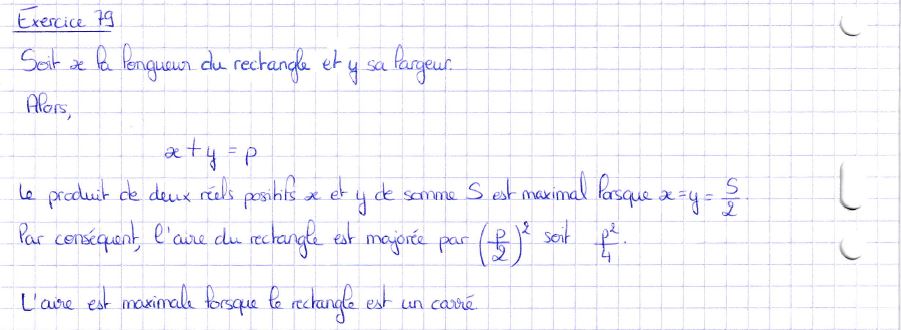 Exercice 79
Soit x la longueur du rectangle et y sa largeur.
Alors,
x + y = p
Le produit de deux réels positifs x et y de somme S est maximal lorsque x = y = S/2.
Par conséquent, l'aire du rectangle est majorée par (p/2)² soit p²/4.
L'aire est maximale lorsque le rectangle est un carré.